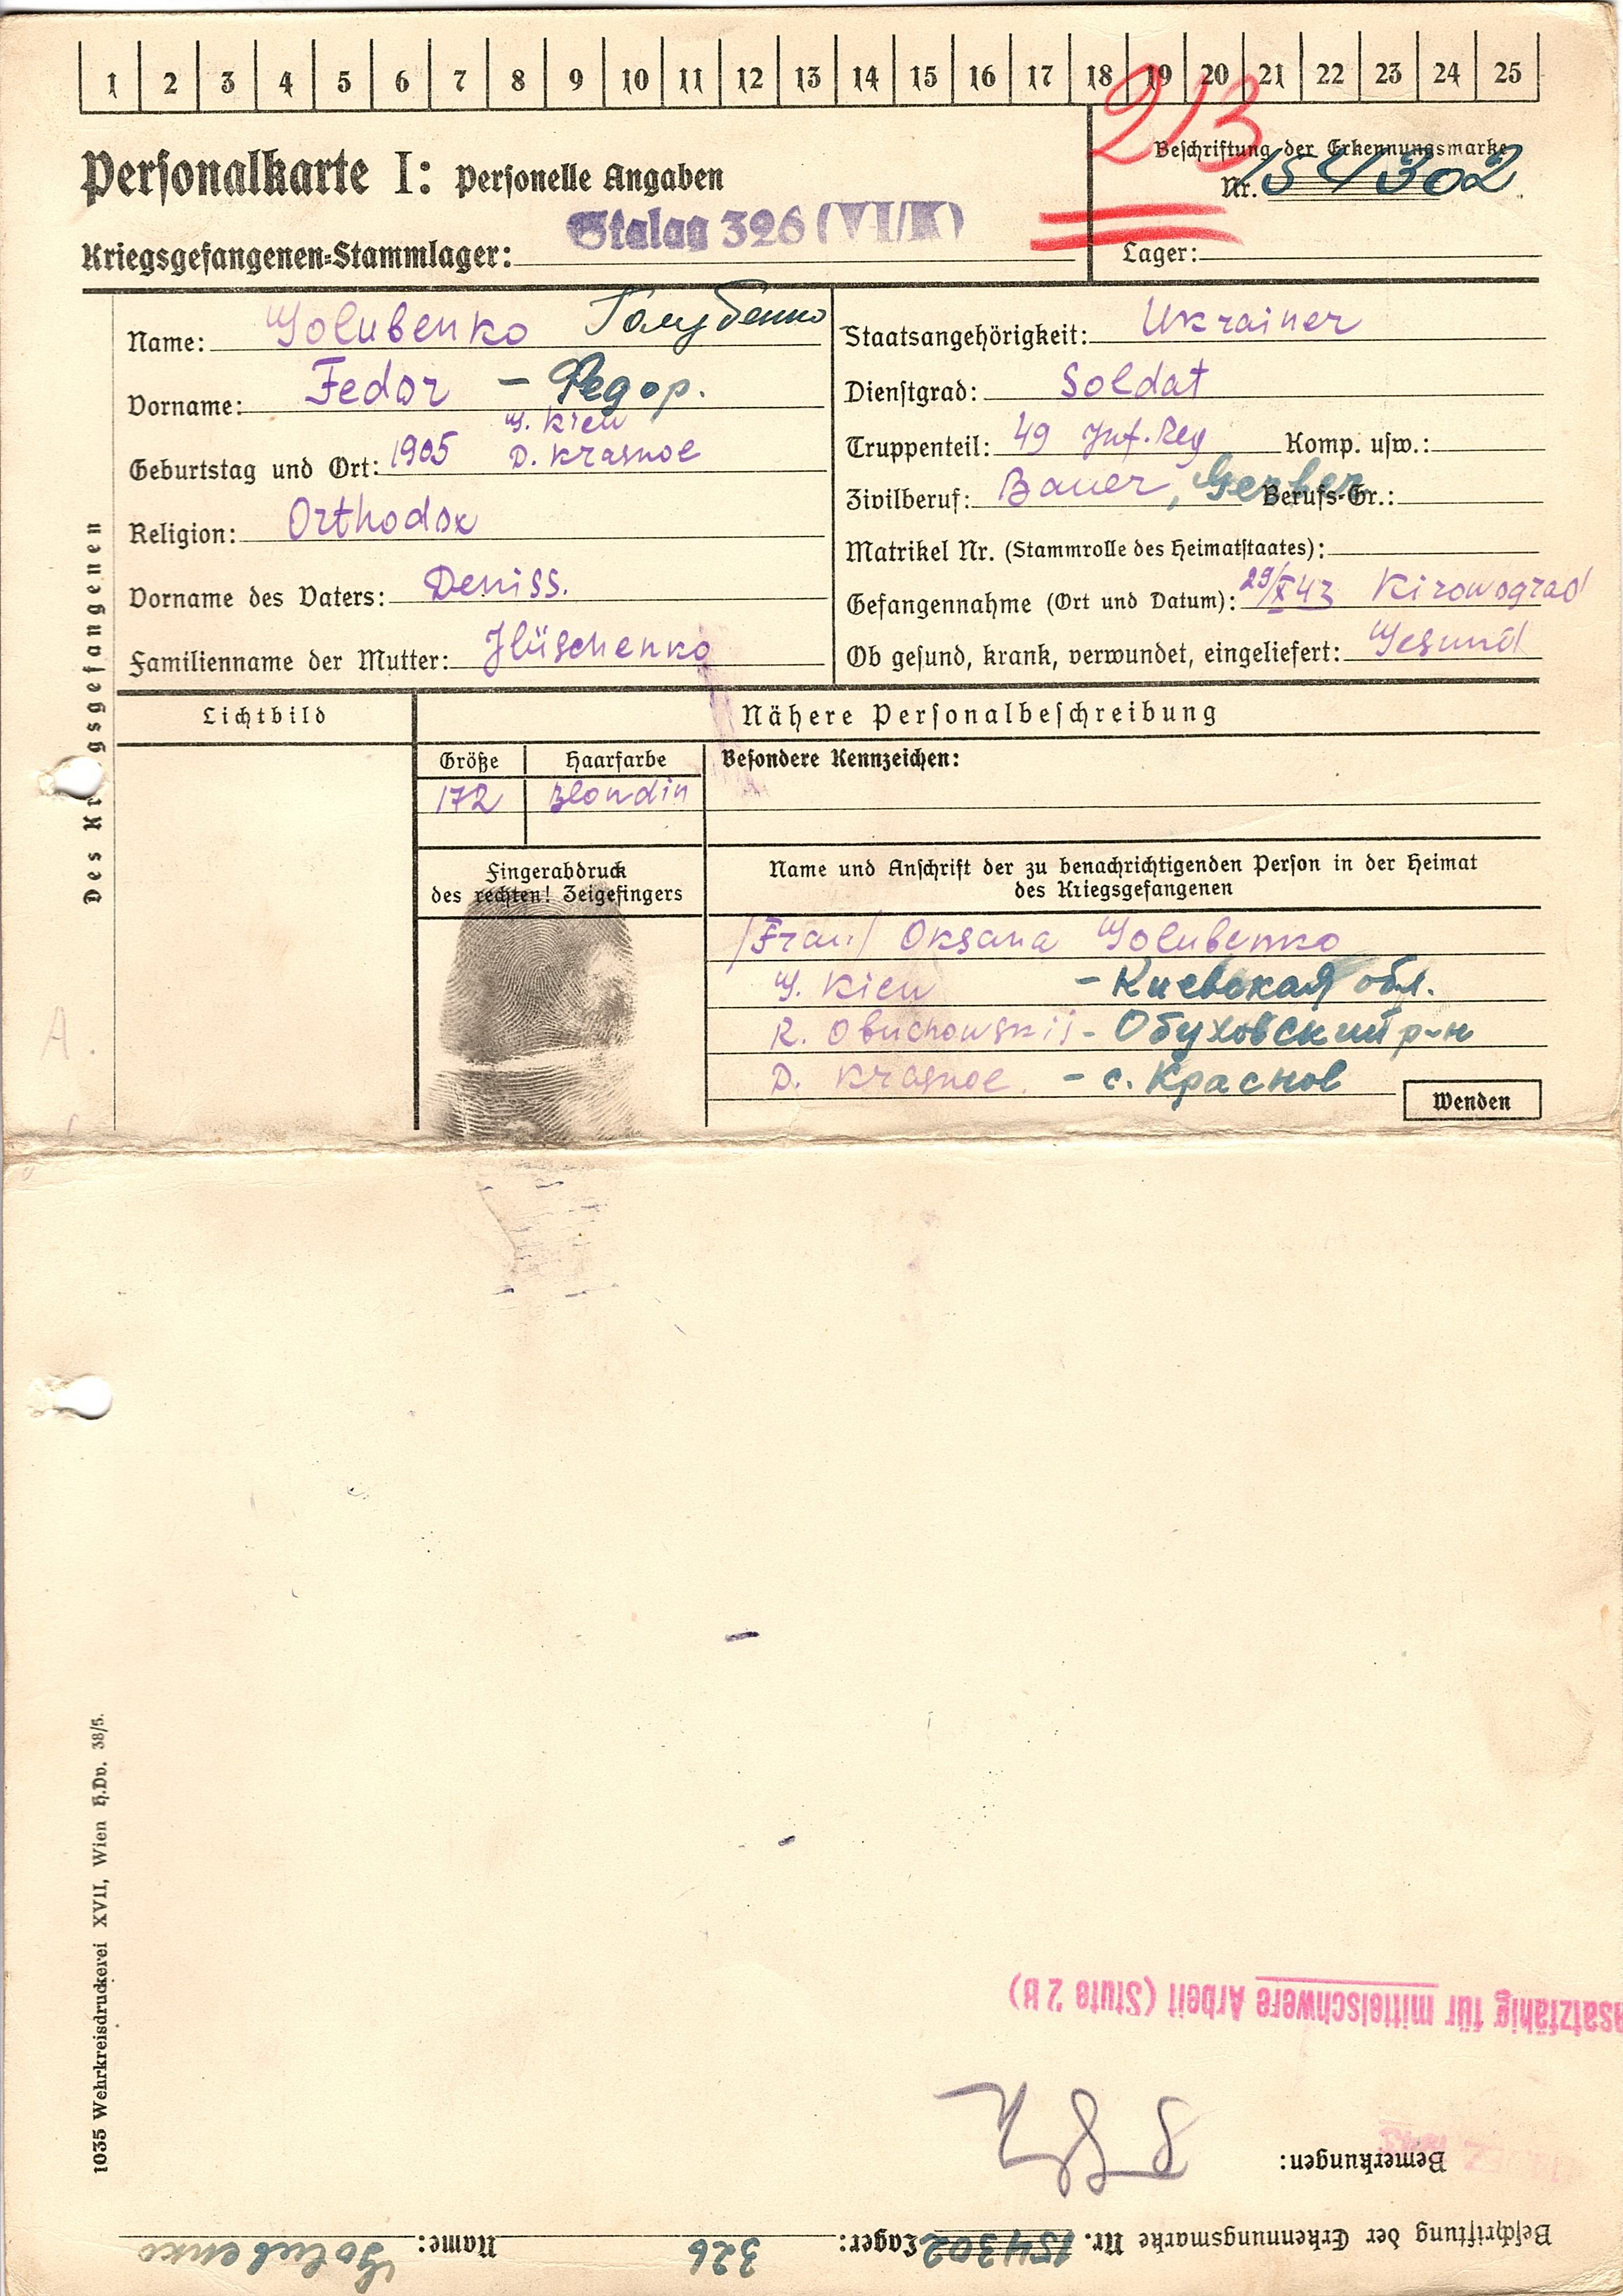 1 2 3 4 5 6 7 8 9 10 11 12 13 14 15 16 17 18 19 20 21 22 23 24 25
213
Personalkarte I: Personelle Angaben
Beschriftung der Erkennungsmarke
Nr. 154302
Kriegsgefangenen-Stammlager: Stalag 326 (VI/K)
Lager:
Des Kriegsgefangenen
Name: Golubenko Голубенко
Vorname: Fedor – Федор.
G. Kiew
Geburtstag und Ort: 1905 D. Krasnoe
Religion: Orthodox
Vorname des Vaters: Deniss.
Familienname der Mutter: Ilüschenko
Staatsangehörigkeit: Ukrainer
Dienstgrad: Soldat
Truppenteil: 49 Inf. Reg Komp. usw.:
Zivilberuf: Bauer, Gerber Berufs-Gr.:
Matrikel Nr. (Stammrolle des Heimatstaates):
Gefangennahme (Ort und Datum): 29/X 43 Kirowograd
Ob gesund, krank, verwundet, eingeliefert: Gesund
Lichtbild
Nähere Personalbeschreibung
Größe Haarfarbe Besondere Kennzeichen:
172 Blondin
Fingerabdruck
des rechten! Zeigefingers
Name und Anschrift der zu benachrichtigenden Person in der Heimat
des Kriegsgefangenen
/Frau/ Oksana Golubenko
G. Kiew – Киевская обл.
R. Obuchowskij - Обуховский р-н
D. Krasnoe. – с. Красное
Wenden
A.
1035 Wehrkreisdruckerei XVII, Wien H.Dv. 38/5.
Beschriftung der Erkennungsmarke Nr. 154302 Lager: 326 Name: Golubenko
Bemerkungen:
satzfähig für mittelschwere Arbeit (Stufe 2 B)